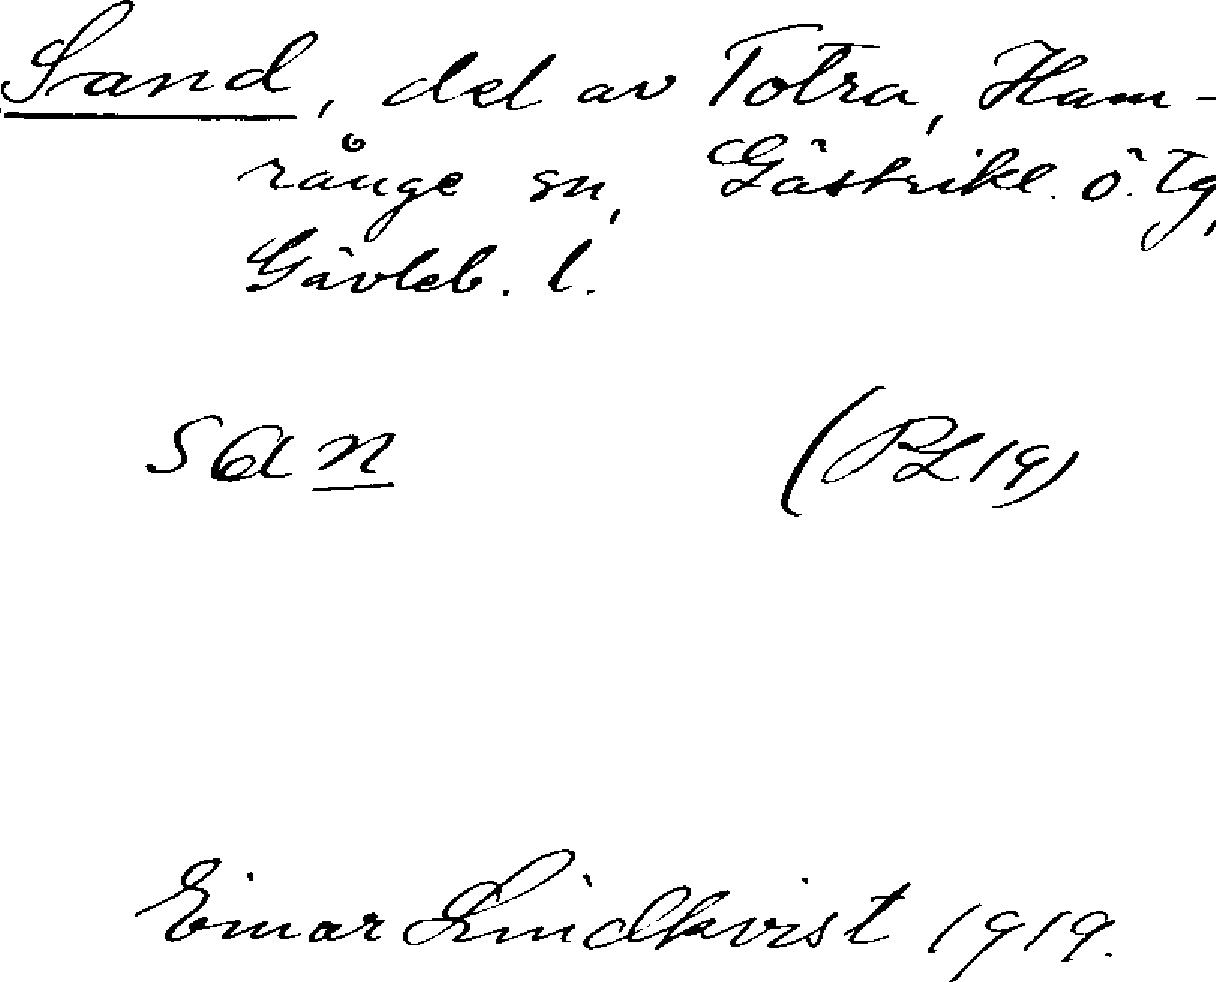 Sand, del av Totra, Ham-
rånge sn, Gästrikl. ö. tg,
Gävleb. l.
san (PL 19)
Einar Lindkvist 1919.